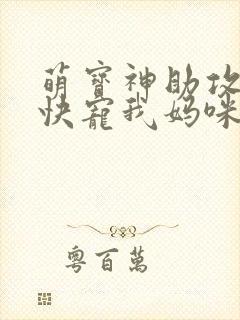 萌寶神助攻
快寵我媽咪
粵百萬